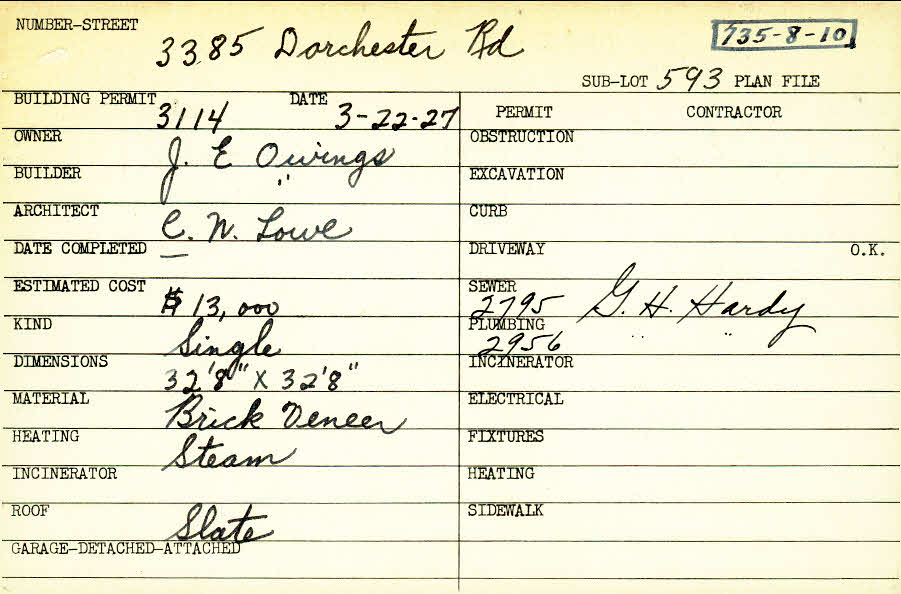 NUMBER-STREET 3385 Dorchester Rd 735-8-10
SUB-LOT 593 PLAN FILE
BUILDING PERMIT 3114 DATE 3-22-27
PERMIT CONTRACTOR
OWNER J. E Owings
OBSTRUCTION
BUILDER "
EXCAVATION
ARCHITECT C. W. Lowe
CURB
DATE COMPLETED —
DRIVEWAY O.K.
ESTIMATED COST $13,000
SEWER 2795 G. H. Hardy
KIND Single
PLUMBING 2956 " "
DIMENSIONS 32'8" X 32'8"
INCINERATOR
MATERIAL Brick Veneer
ELECTRICAL
HEATING Steam
FIXTURES
INCINERATOR
HEATING
ROOF Slate
SIDEWALK
GARAGE-DETACHED-ATTACHED